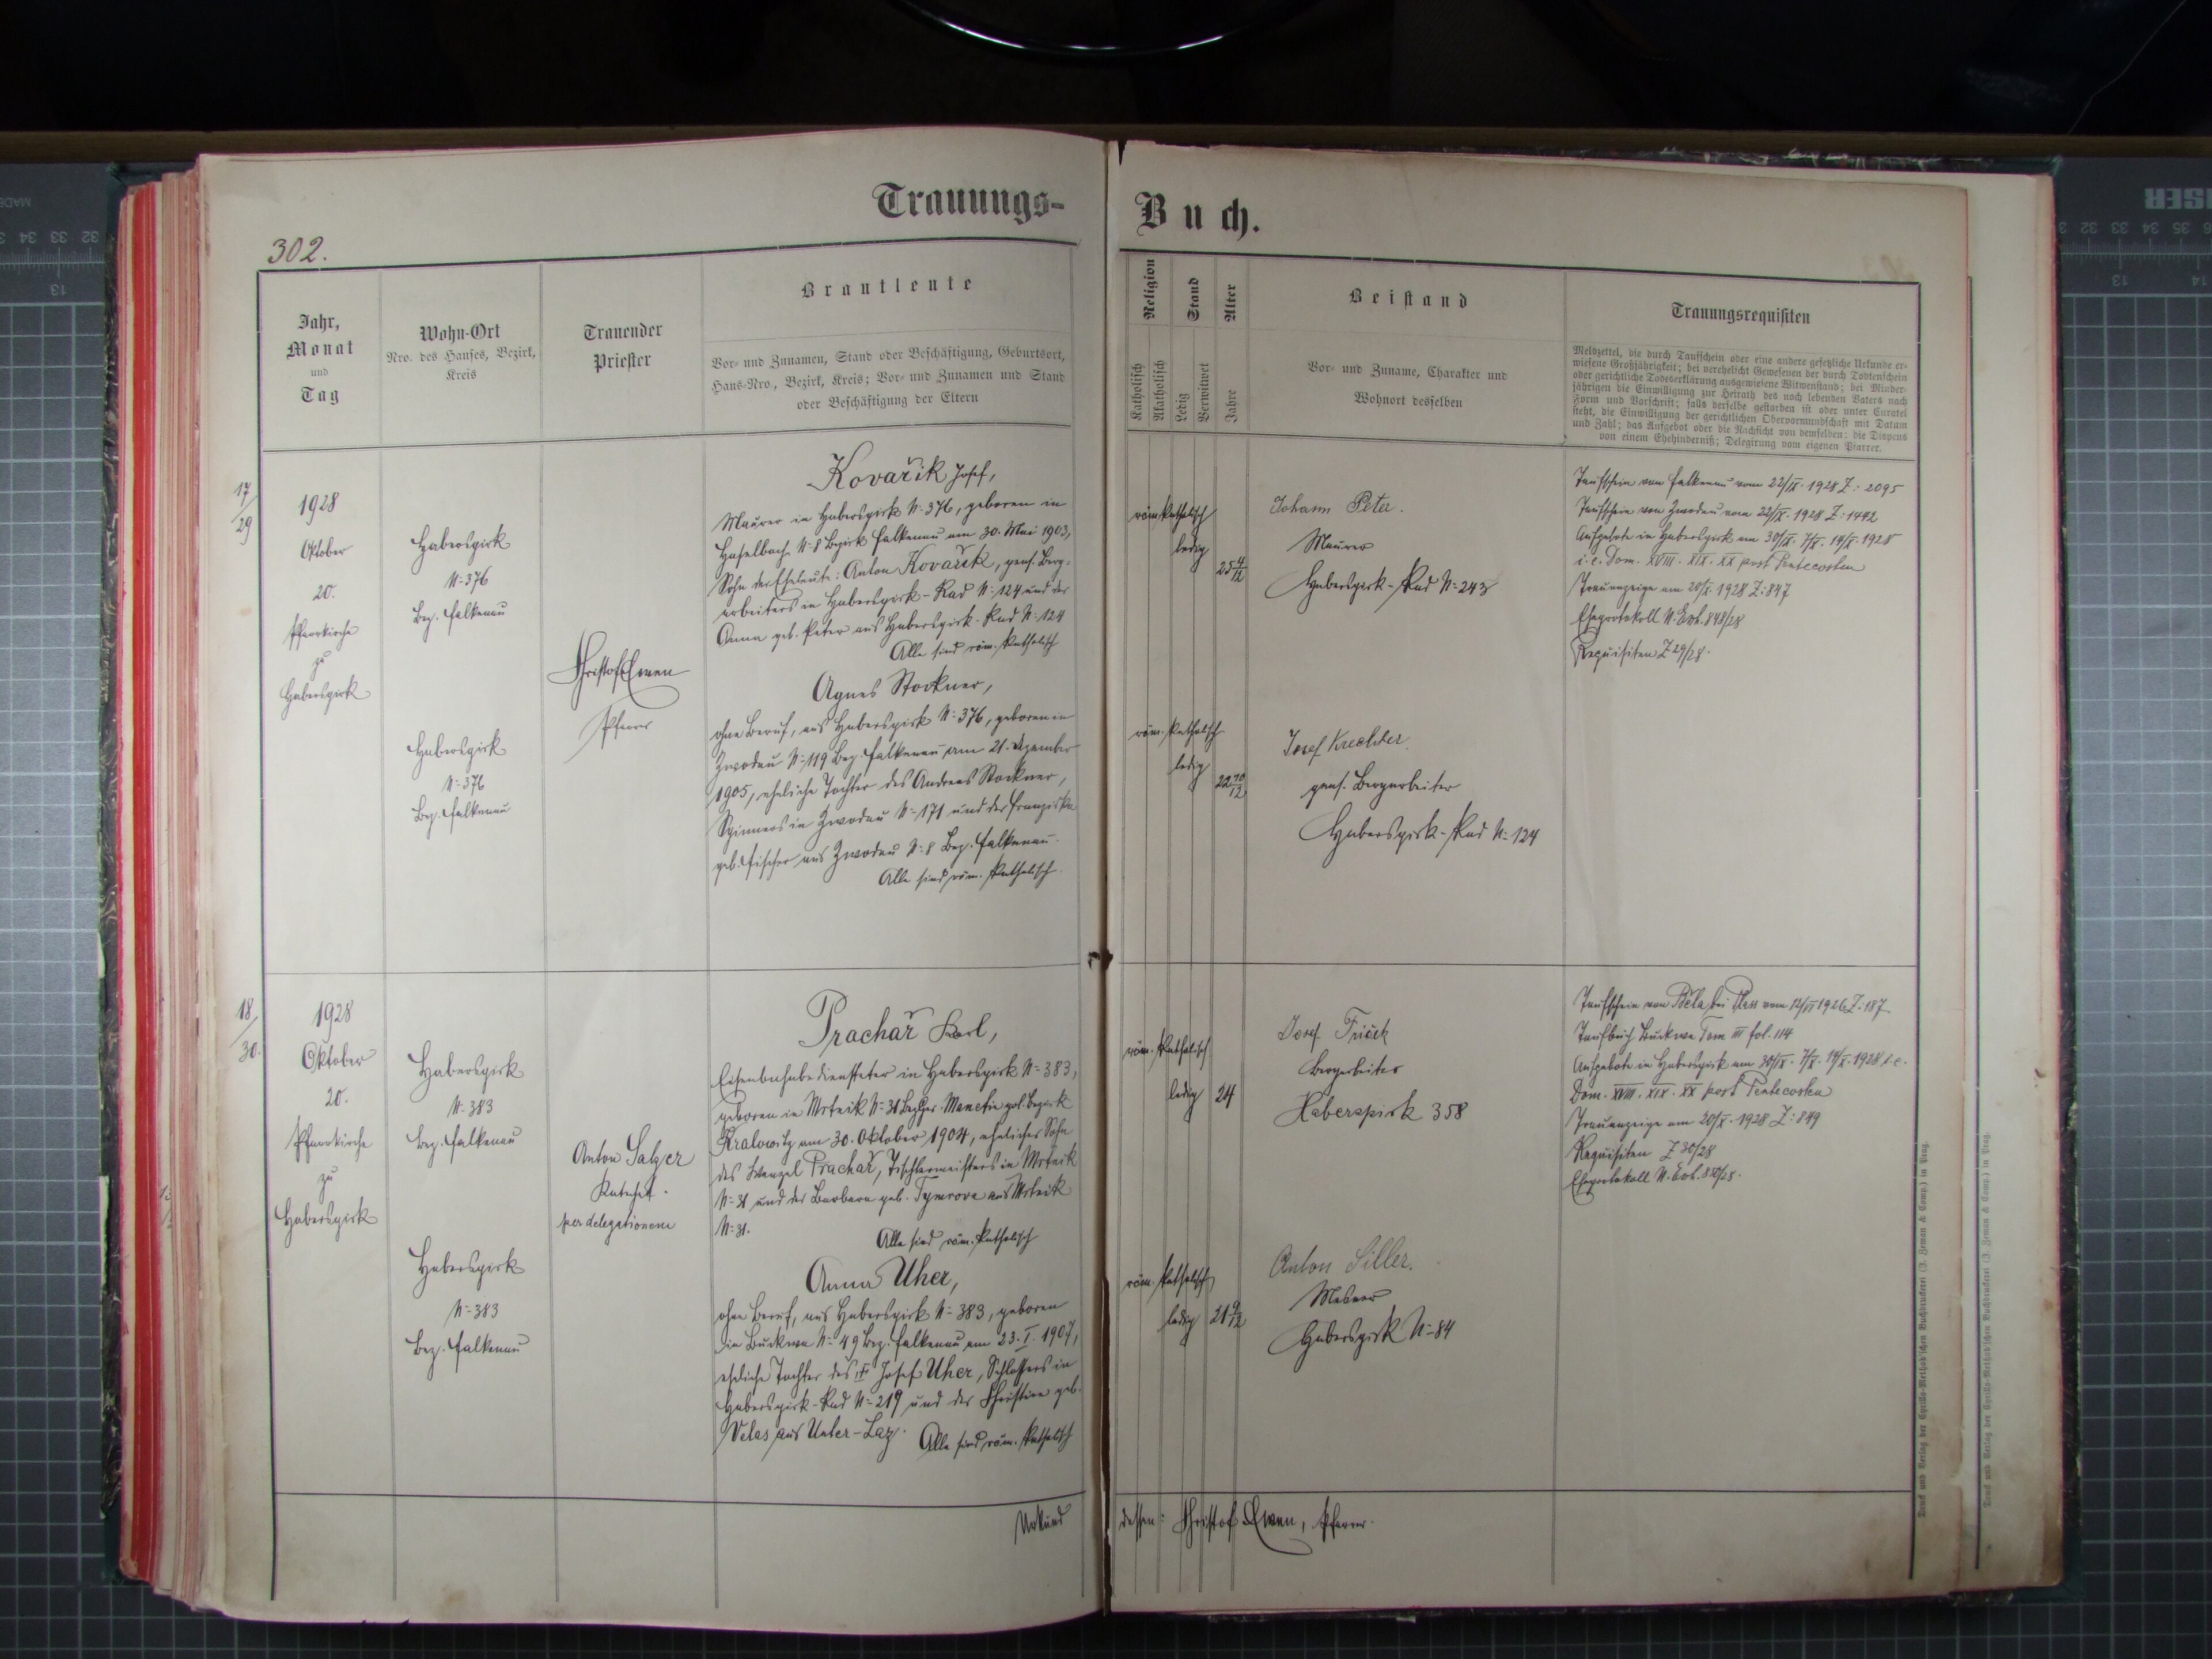 Trauungs-
302.
Jahr,
Monat
und
Tag
Wohn-Ort
Nro. des Hauses, Bezirk,
Kreis
Trauender
Priester
Brautleute
Vor- und Zunamen, Stand oder Beschäftigung, Geburtsort,
Haus-Nro., Bezirk, Kreis; Vor- und Zunamen und Stand
oder Beschäftigung der Eltern
17/29
1928
Oktober
20.
Pfarrkirche
zu
Haberspirk
Haberspirk
N=376
Bez. Falkenau
Haberspirk
N=376
Bez. Falkenau
Christof Emen
Pfarrer
Kovařík Josef,
Maurer in Haberspirk N=376, geboren in
Haselbach N=8 Bezirk Falkenau am 30. Mai 1903,
Sohn der Eheleute: Anton Kovařik, pens. Berg-
arbeiters in Haberspirk-Rad N=124 und der
Anna geb. Peter aus Haberspirk-Rad N=124
Alle sind röm. katholisch
Agnes Stockner,
ohne Beruf, aus Haberspirk N=376, geboren in
Zwodau N=119 Bez. Falkenau am 21. Dezember
1905, eheliche Tochter des Andreas Stockner,
Spinners in Zwodau N=171 und der Franziska
geb. Fischer aus Zwodau N=8 Bez. Falkenau.
Alle sind röm. katholisch
18/30.
1928
Oktober
20.
Pfarrkirche
zu
Haberspirk
Haberspirk
N=383
Bez. Falkenau
Haberspirk
N=383
Bez. Falkenau
Anton Salzer
Katechet.
per delegationem
Prachař Karl,
Eisenbahnbediensteter in Haberspirk N=383,
geboren in Mrtnik N=31 Bez. Ger. Manetin pol. Bezirk
Kralowitz am 30. Oktober 1904, ehelicher Sohn
des Wenzel Prachař, Tischlermeisters in Mrtnik
N=31 und der Barbara geb. Tymrova aus Mrtnik
N=31.
Alle sind röm. katholisch
Anna Uher,
ohne Beruf, aus Haberspirk N=383, geboren
in Buckwa N=49 Bez. Falkenau am 23.I.1907,
eheliche Tochter des Josef Uher, Schlossers in
Haberspirk-Rad N=219 und der Christine geb.
Velas aus Unter-Laz. Alle sind röm. katholisch
Urkund
Buch.
Religion
Stand
Alter
Katholisch
Akatholisch
Ledig
Verwitwet
Jahre
Beistand
Vor- und Zuname, Charakter und
Wohnort desselben
Trauungsrequisiten
Meldzettel, die durch Taufschein oder eine andere gesetzliche Urkunde er-
wiesene Großjährigkeit; bei verehelicht Gewesenen der durch Todtenschein
oder gerichtliche Todeserklärung ausgewiesene Witwenstand; bei Minder-
jährigen die Einwilligung zur Heirath des noch lebenden Vaters nach
Form und Vorschrift; falls derselbe gestorben ist oder unter Curatel
steht, die Einwilligung der gerichtlichen Obervormundschaft mit Datum
und Zahl; das Aufgebot oder die Nachsicht von demselben; die Dispens
von einem Ehehinderniß; Delegirung vom eigenen Pfarrer.
röm. katholisch
ledig
25 4/12
Johann Peter.
Maurer
Haberspirk-Rad N=243
röm. katholisch
ledig
22 10/12
Josef Krechler
pens. Bergarbeiter
Haberspirk-Rad N=124
Taufschein von Falkenau vom 22/IX. 1928 Z: 2095
Taufschein von Zwodau vom 22/IX. 1928 Z: 1442
Aufgebote in Haberspirk am 30/IX. 7/X. 14/X. 1928
i.e. Dom. XVIII. XIX. XX post Pentecosten
Trauanzeige am 20/X. 1928 Z: 847
Eheprotokoll N. Exh. 848/28
Requisiten Z 29/28.
röm. katholisch
ledig
24
Josef
Bergarbeiter
Haberspirk 358
röm. katholisch
ledig
21 9/12
Anton Siller.
Mesner
Haberspirk N=84
Taufschein von Běla bei Plass vom 12/VI 1926 Z: 187
Taufbuch Buckwa Tom III fol. 114
Aufgebote in Haberspirk am 30/IX. 7/X. 14/X. 1928 i.e.
Dom. XVIII. XIX. XX post Pentecosten
Trauanzeige am 20/X. 1928 Z: 849
Requisiten Z 30/28
Eheprotokoll N. Exh. 850/28.
dessen: Christof Emen, Pfarrer.
Druck und Verlag der Cyrillo-Method'schen Buchdruckerei (J. Zeman & Comp.) in Prag.
Druck und Verlag der Cyrillo-Method'schen Buchdruckerei (J. Zeman & Comp.) in Prag.